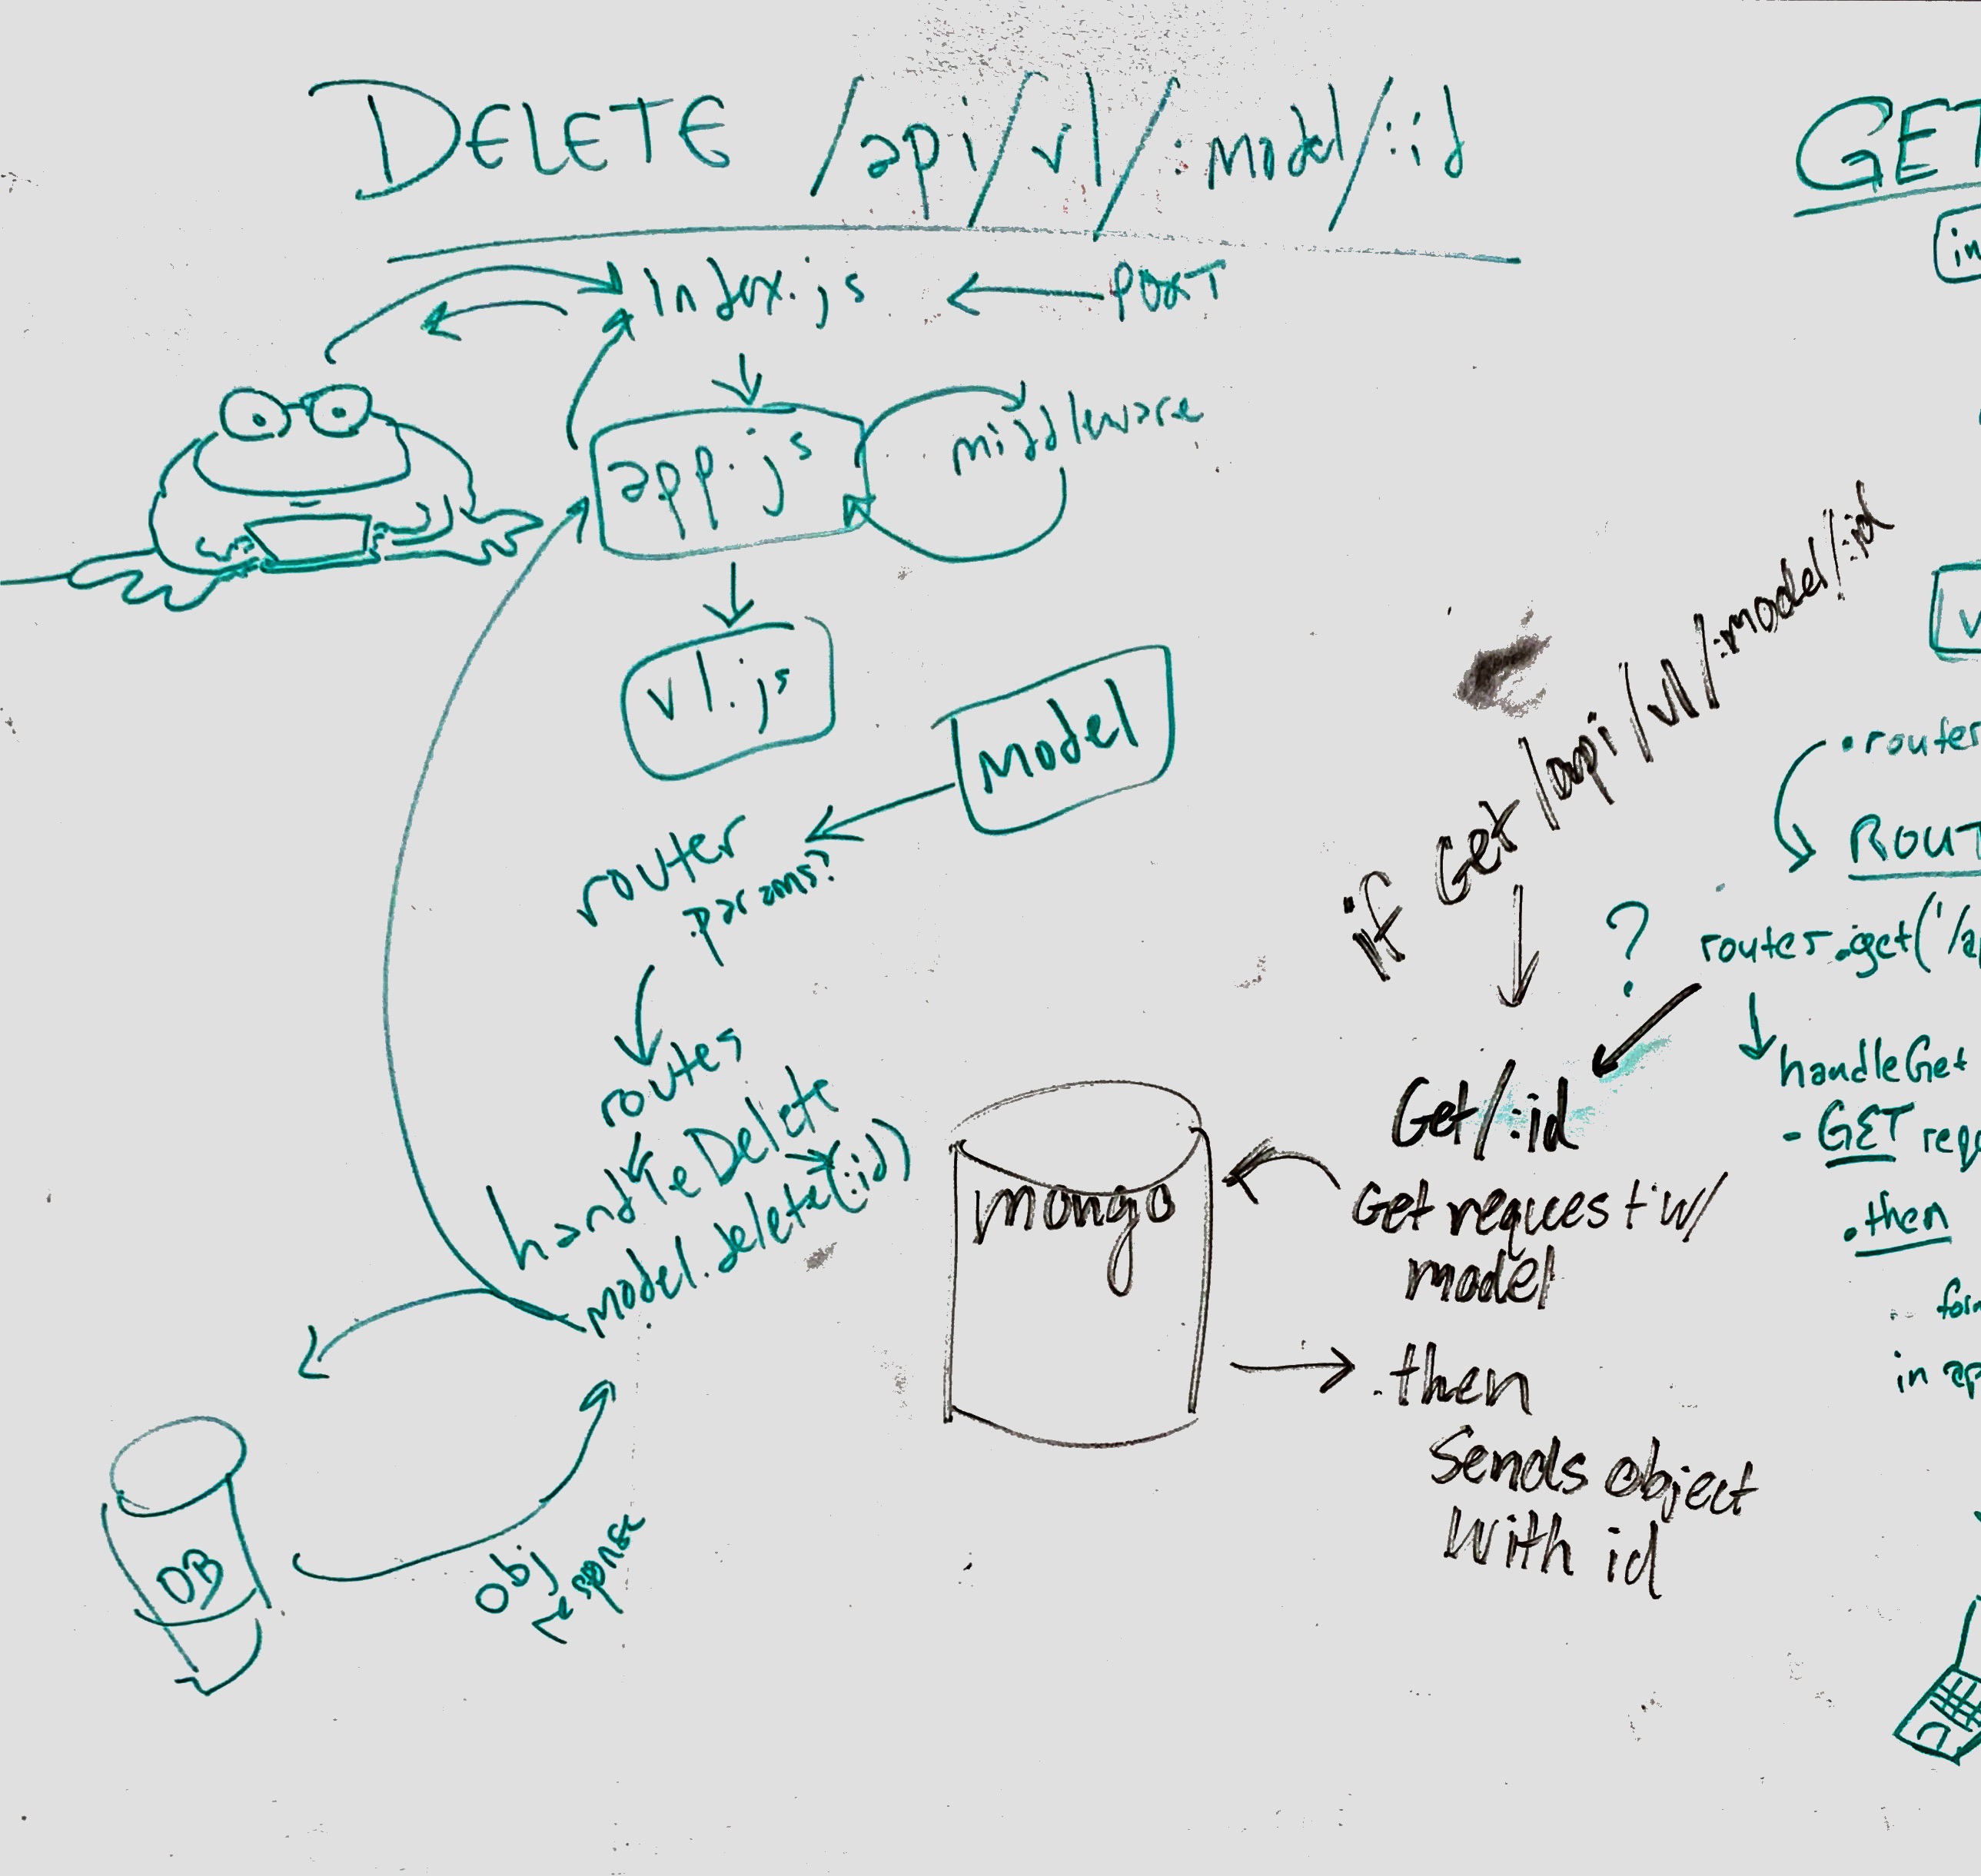 DELETE /api/v1/:model/:id
index.js
PORT
app.js
middleware
v1.js
model
router
.params?
routes
handleDelete
model.delete(:id)
DB
obj
response
if Get /api/v1/:model/:id
Get/:id
Get request w/
model
mongo
.then
Sends object
With id
GET
in
v
.router
ROUT
?
router.get('/ap
handleGet
- GET requ
.then
in ap